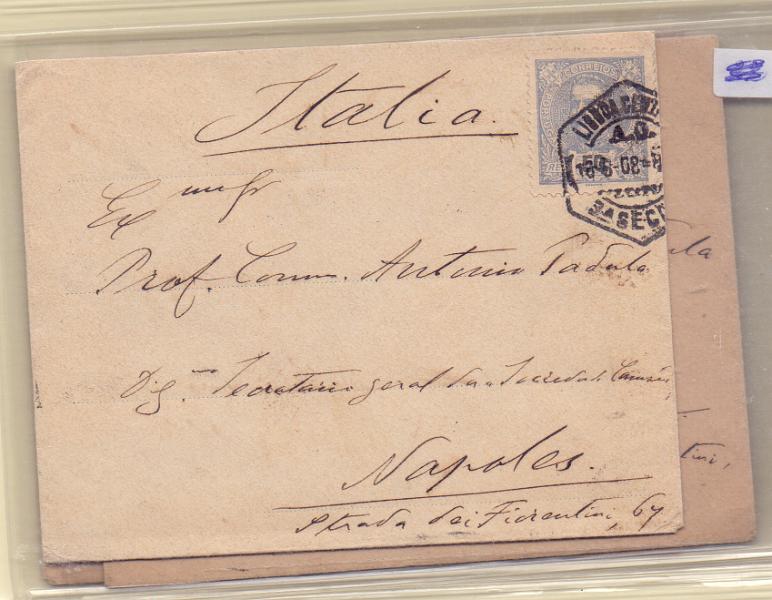 Italia.
CORREIOS
LISBOA CENT
A.O.
50
-6-08-
3ASEC
Ex mo Sr
Prof. Comm. Antonio Padula
Dig. mo Secretario geral da Sociedade Camões
Napoles.
Strada dei Fiorentini, 64
ula
tini,